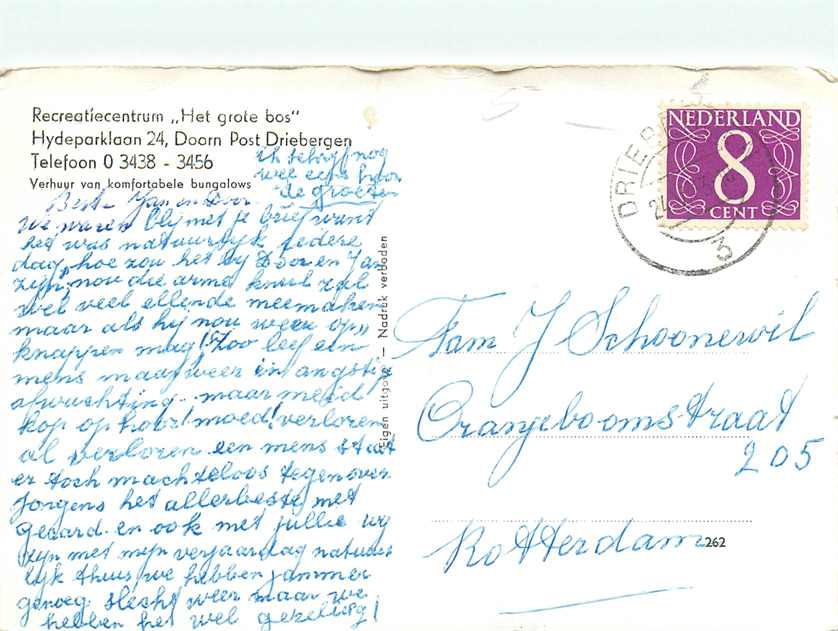 Recreatiecentrum „Het grote bos"
Hydeparklaan 24, Doorn Post Driebergen
Telefoon 0 3438 - 3456
Verhuur van komfortabele bungalows
ik schrijf nog
wel eens hoor
de groeten
Beste Jan en Door
We waren blij met je brief want
het was natuurlijk iedere
dag, hoe zou het bij Door en Jan
zijn, nou die arme knul zal
wel veel ellende meemaken
maar als hij nou weer op„
knappen mag! Zoo leef een
mens maar weer in angstig
afwachting. maar meid
kop op hoor! moed! verloren
al verloren een mens staat
er toch machteloos tegenover
Jorgens het allerbeste met
Geeard. en ook met jullie wij
zijn met mijn verjaardag natuur
lijk thuis, we hebben jammer
genoeg slecht weer maar we
hebben het wel gezellig!
Eigen uitgave — Nadruk verboden
NEDERLAND
8
CENT
DRIEB
3
Fam J Schoonewil
Oranjeboomstraat
205
Rotterdam
262